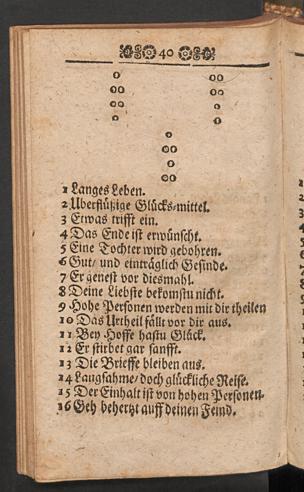 40
1 Langes Leben.
2 Uberflüßige Glücks-mittel.
3 Etwas trifft ein.
4 Das Ende ist erwünscht.
5 Eine Tochter wird gebohren.
6 Gut- und einträglich Gesinde.
7 Er genest vor diesmahl.
8 Deine Liebste bekomstu nicht.
9 Hohe Personen werden mit dir theilen
10 Das Urtheil fällt vor dir aus.
11 Bey Hoffe hastu Glück.
12 Er stirbet gar sanfft.
13 Die Brieffe bleiben aus.
14 Langsahme/doch glückliche Reise.
15 Der Einhalt ist von hohen Personen.
16 Geh behertzt auff deinen Feind.